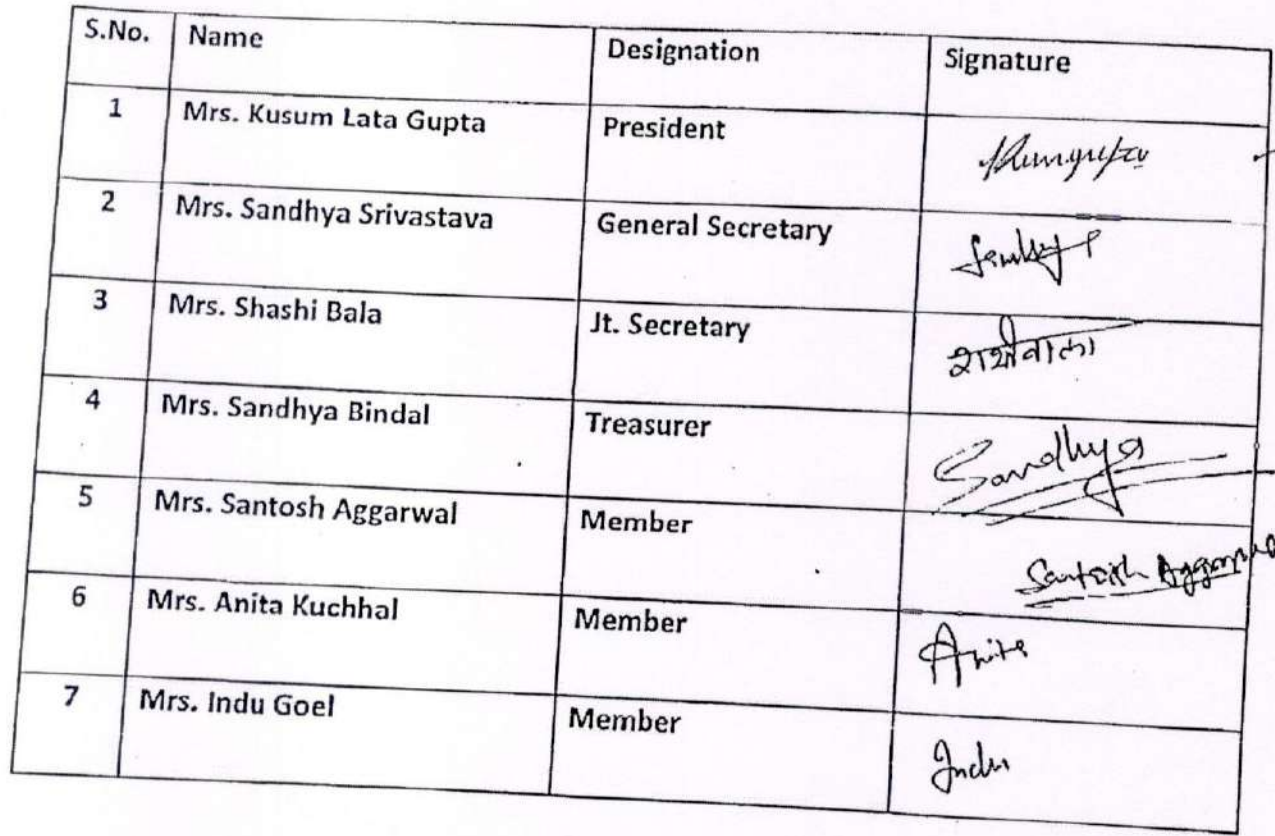 S.No. Name Designation Signature
1 Mrs. Kusum Lata Gupta President
2 Mrs. Sandhya Srivastava General Secretary
3 Mrs. Shashi Bala Jt. Secretary
4 Mrs. Sandhya Bindal Treasurer Sandhya
5 Mrs. Santosh Aggarwal Member Santosh
6 Mrs. Anita Kuchhal Member Anita
7 Mrs. Indu Goel Member Indu